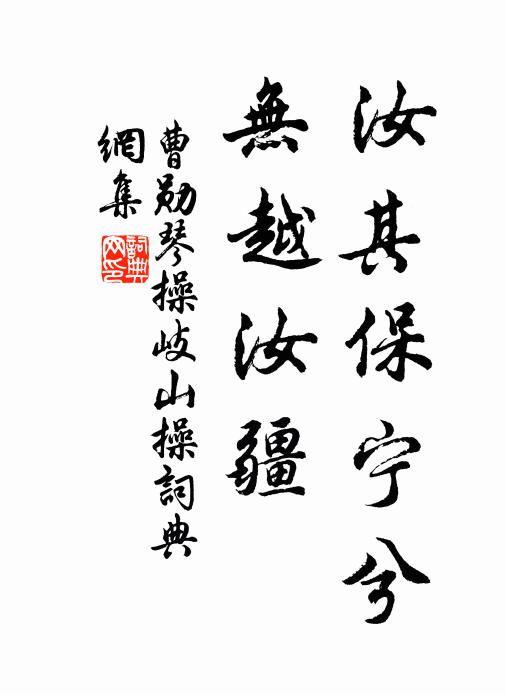 汝其保宁兮
無越汝疆
曹勛琴操岐山操詞典
網集
詞典网印